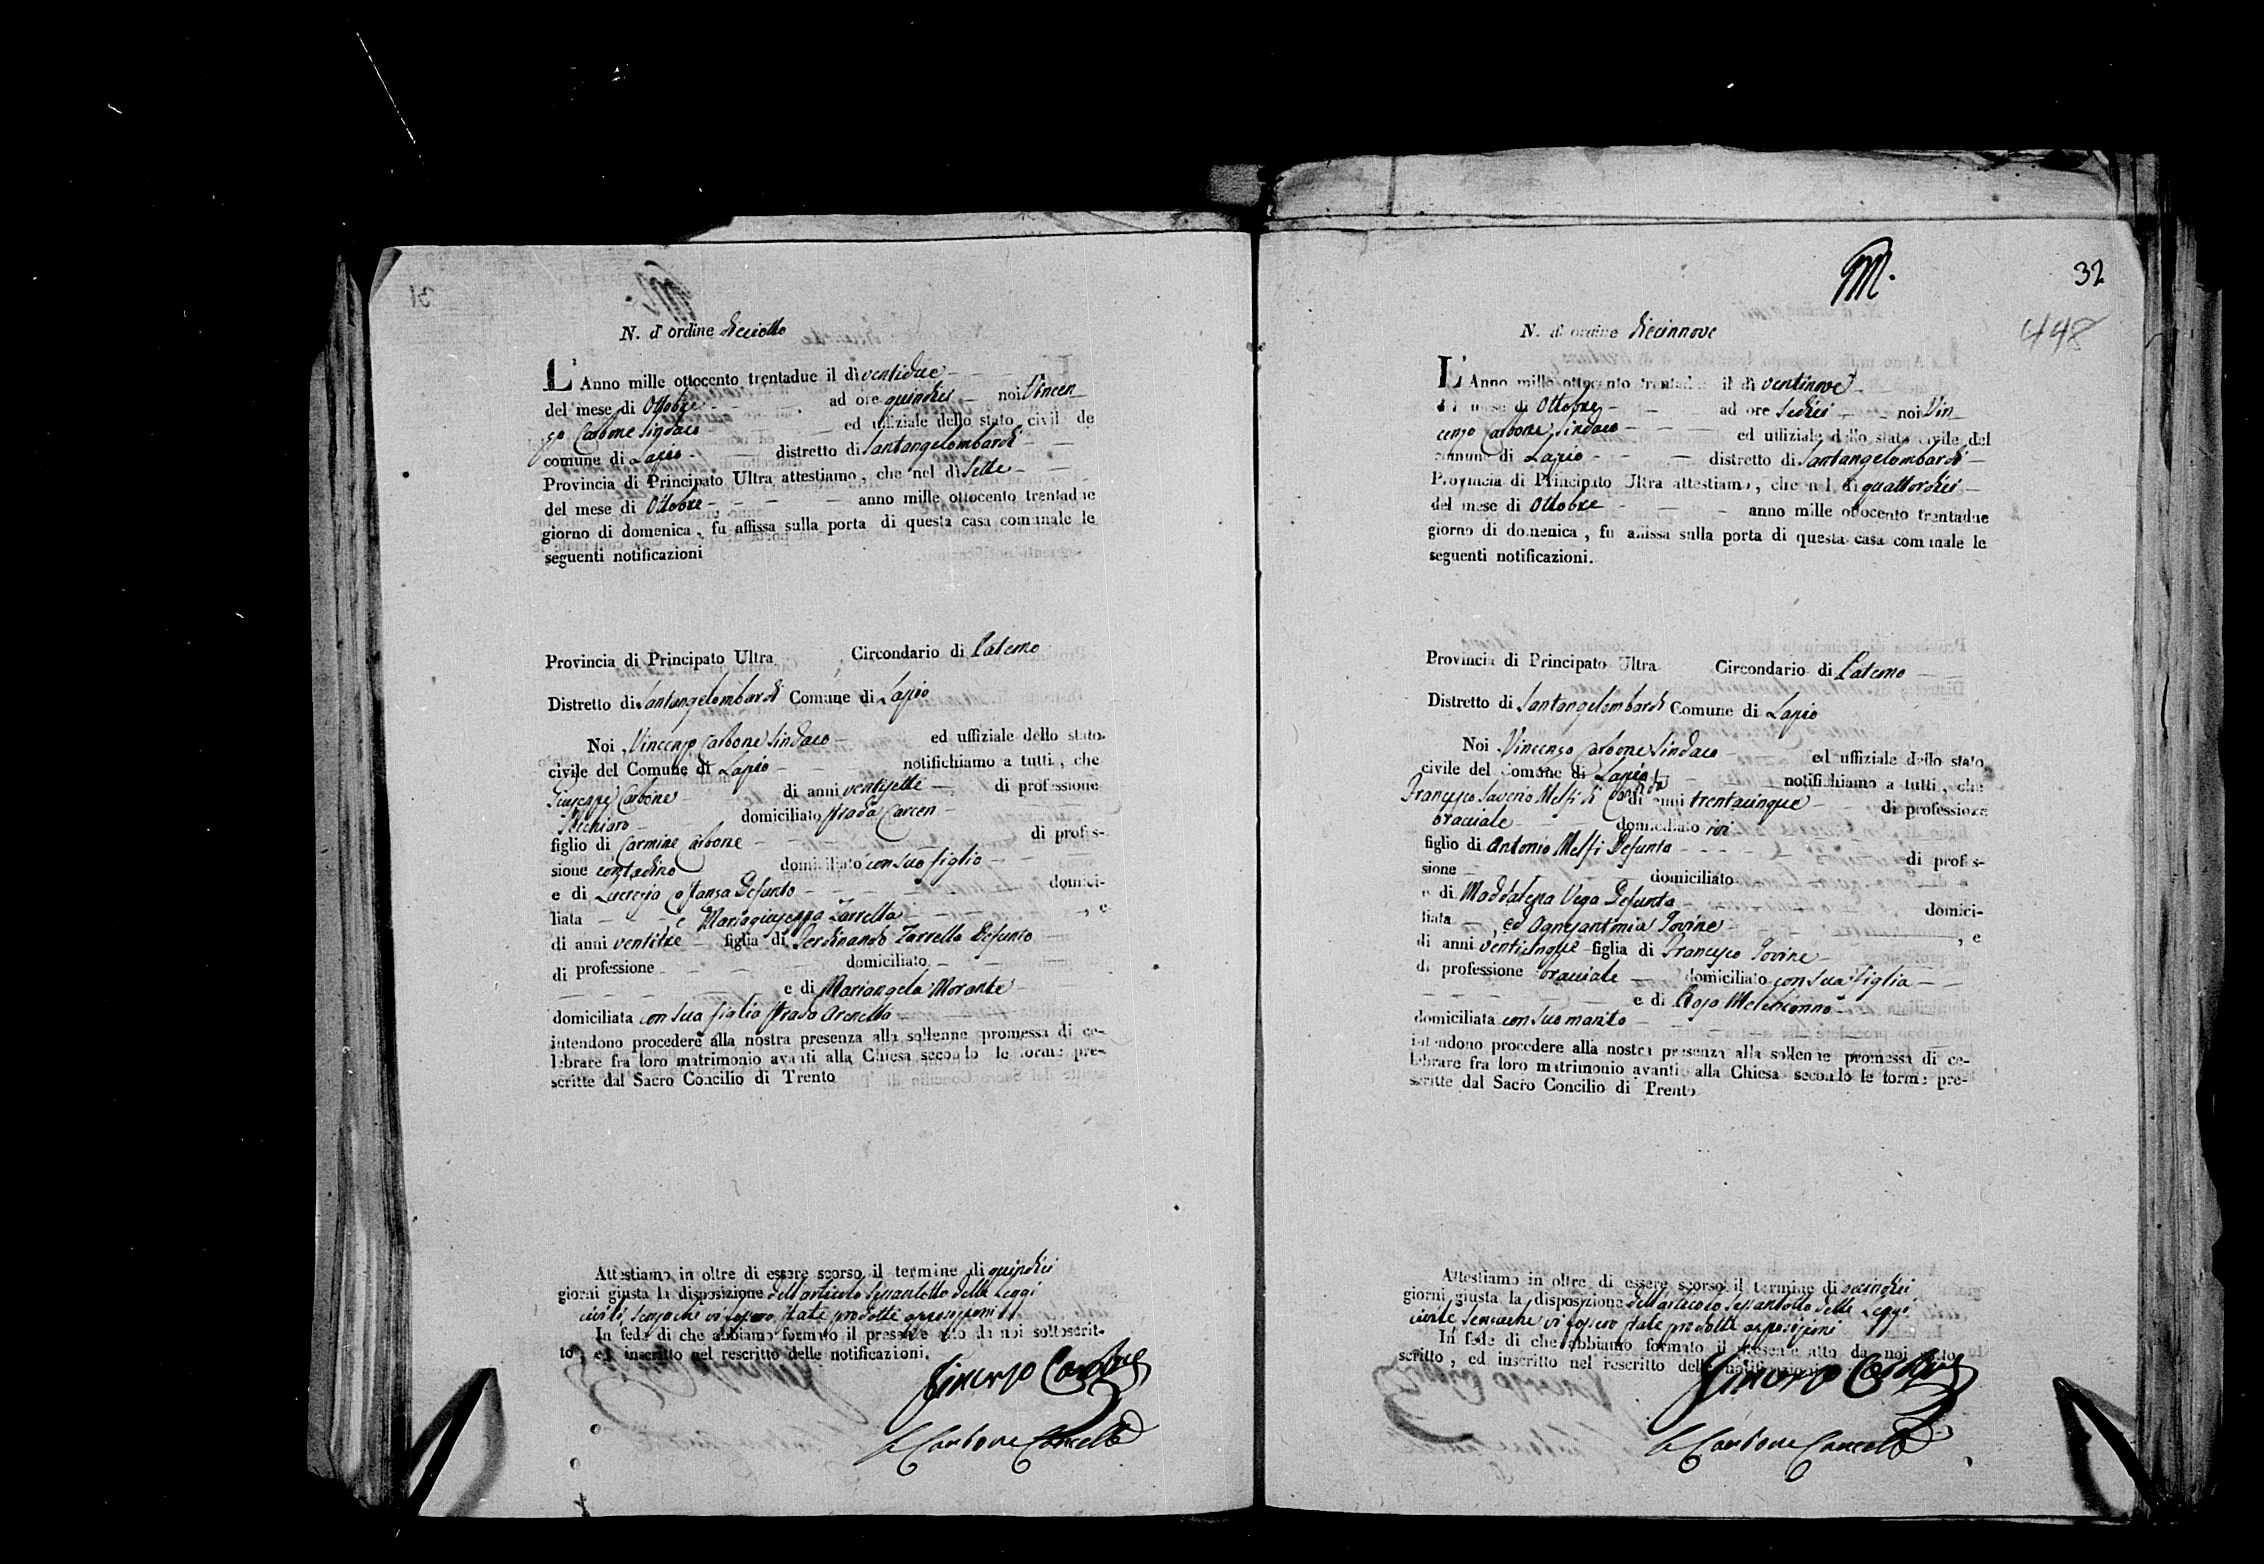 N. d' ordine dieciotto
L' Anno mille ottocento trentadue il dì ventidue
del mese di Ottobre ad ore quindici noi Vincen
zo Carbone Sindaco ed uffiziale dello stato civil de
comune di Lapio distretto di Santangelombardi
Provincia di Principato Ultra attestiamo, che nel dì Sette
del mese di Ottobre anno mille ottocento trentadue
giorno di domenica, fu affissa sulla porta di questa casa comunale le
seguenti notificazioni
Provincia di Principato Ultra Circondario di Paterno
Distretto di Santangelombardi Comune di Lapio
Noi Vincenzo Carbone Sindaco ed uffiziale dello stato
civile del Comune di Lapio notifichiamo a tutti, che
Giuseppe Carbone di anni ventisette di professione
domiciliato strada Carcen
figlio di Carmine Carbone di profes-
sione contadino domiciliato con suo figlio
e di Lucrezia Costanza Defunto domici-
liata e Mariagiuseppa Zarrella, e
di anni ventitre figlia di Ferdinando Zarrella Defunto
di professione domiciliato
e di Mariangela Morante
domiciliata con sua figlia strada Arenella
intendono procedere alla nostra presenza alla sollenne promessa di ce-
lebrare fra loro matrimonio avanti alla Chiesa secondo le forme pre-
scritte dal Sacro Concilio di Trento
Attestiamo in oltre di essere scorso il termine di quindici
giorni giusta la disposizione dell'articolo Sessantotto delle Leggi
civili, senzache vi fossero state prodotte opposizioni
In fede di che abbiamo formato il presente atto da noi sottoscrit-
to, ed inscritto nel rescritto delle notificazioni.
Vincenzo Carbone
Carbone Cancell
M.
32
448
N. d' ordine diecinnove
L' Anno mille ottocento trentadue il dì ventinove
del mese di Ottobre ad ore Sedici noi Vin
cenzo Carbone Sindaco ed uffiziale dello stato civile del
comune di Lapio distretto di Santangelombardi
Provincia di Principato Ultra attestiamo, che nel dì quattordici
del mese di Ottobre anno mille ottocento trentadue
giorno di domenica, fu affissa sulla porta di questa casa comunale le
seguenti notificazioni.
Provincia di Principato Ultra Circondario di Paterno
Distretto di Santangelombardi Comune di Lapio
Noi Vincenzo Carbone Sindaco ed uffiziale dello stato
civile del Comune di Lapio notifichiamo a tutti, che
Francesco Saverio Melfi di anni trentacinque di professione
bracciale domiciliato ivi
figlio di Antonio Melfi Defunto di profes-
sione domiciliato
e di Maddalena Vega Defunta domici-
liata ed Agnesantonia Iovine, e
di anni venticinque figlia di Francesco Iovine
di professione bracciale domiciliato con sua figlia
e di Rosa Melchionno
domiciliata con suo marito
intendono procedere alla nostra presenza alla sollenne promessa di ce-
lebrare fra loro matrimonio avanti alla Chiesa secondo le forme pre-
scritte dal Sacro Concilio di Trento
Attestiamo in oltre di essere scorso il termine di quindici
giorni giusta la disposizione dell'articolo Sessantotto delle Leggi
civile senzache vi fossero state prodotte opposizioni
In fede di che abbiamo formato il presente atto da noi sotto
scritto, ed inscritto nel rescritto delle notificazioni
Vincenzo Carbone
Carbone Cancell